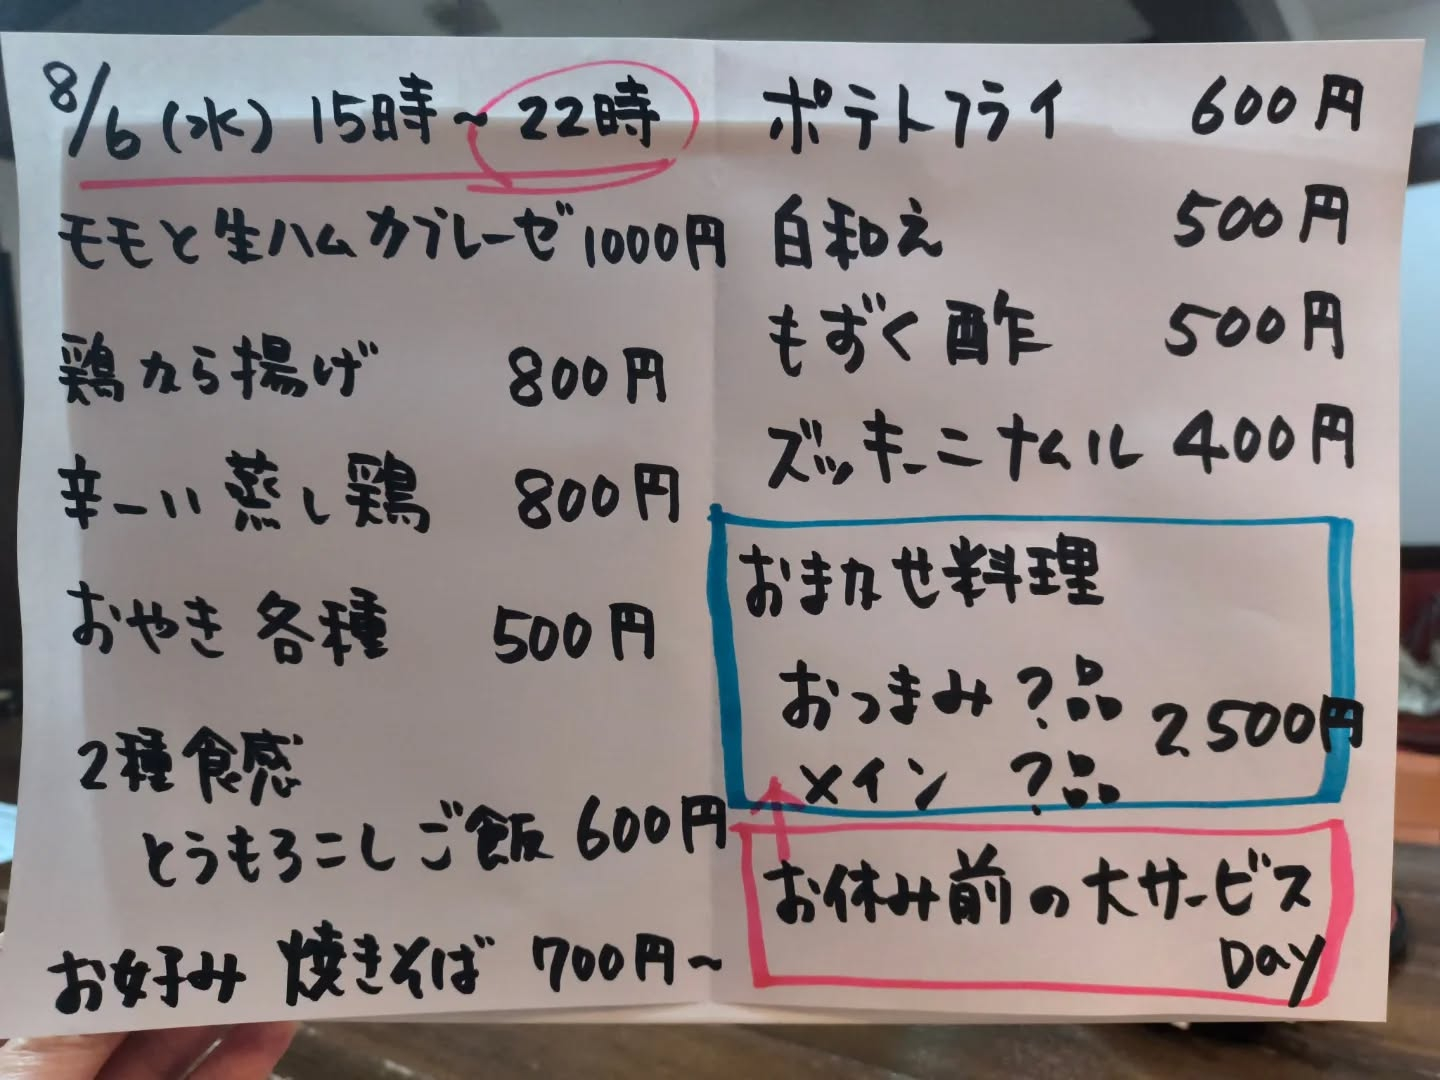 8/6(水) 15時~22時
モモと生ハムカプレーゼ 1000円
鶏から揚げ 800円
辛ーい蒸し鶏 800円
おやき各種 500円
2種食感
とうもろこしご飯 600円
お好み 焼きそば 700円~
ポテトフライ 600円
白和え 500円
もずく酢 500円
ズッキーニナムル 400円
おまかせ料理
おつまみ ?品
メイン ?品 2,500円
お休み前の大サービス
Day